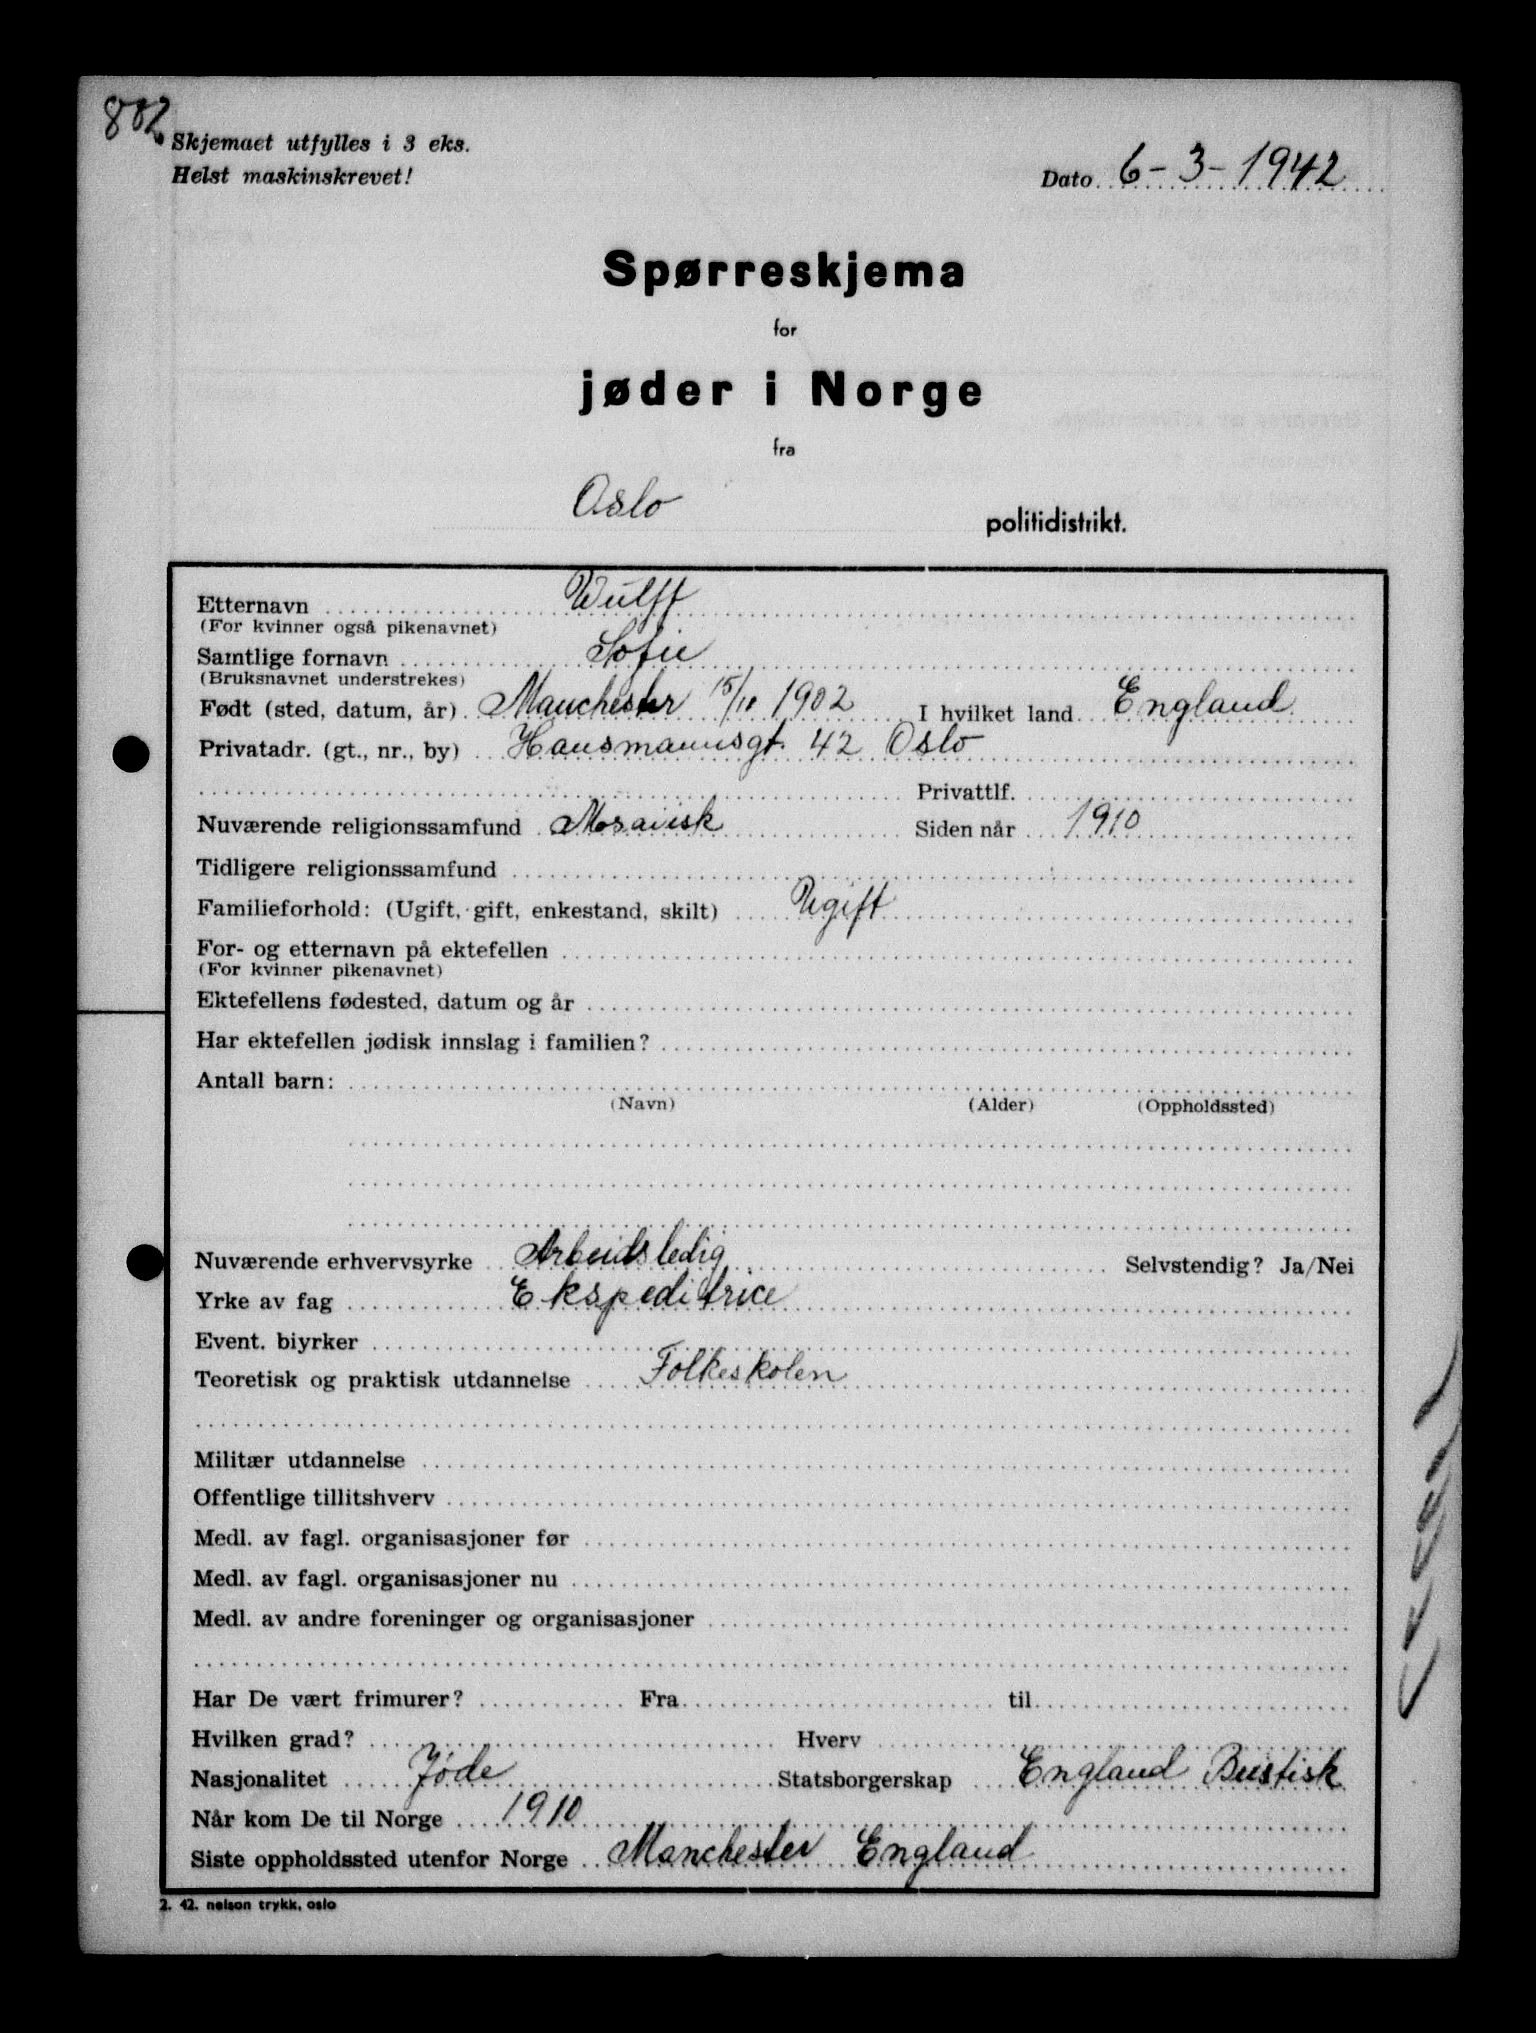 882
Skjemaet utfylles i 3 eks.
Helst maskinskrevet!
Dato 6-3-1942
Spørreskjema
for
jøder i Norge
fra
Oslo politidistrikt.
Etternavn Wulff
(For kvinner også pikenavnet)
Samtlige fornavn Sofie
(Bruksnavnet understrekes)
Født (sted, datum, år) Manchester 15/11 1902 I hvilket land England
Privatadr. (gt., nr., by) Hausmannsgt. 42 Oslo
Privattlf.
Nuværende religionssamfund Mosaisk Siden når 1910
Tidligere religionssamfund
Familieforhold: (Ugift, gift, enkestand, skilt) Ugift
For- og etternavn på ektefellen
(For kvinner pikenavnet)
Ektefellens fødested, datum og år
Har ektefellen jødisk innslag i familien?
Antall barn:
(Navn) (Alder) (Oppholdssted)
Nuværende erhvervsyrke Arbeidsledig Selvstendig? Ja/Nei
Yrke av fag Ekspeditrice
Event. biyrker
Teoretisk og praktisk utdannelse Folkeskolen
Militær utdannelse
Offentlige tillitshverv
Medl. av fagl. organisasjoner før
Medl. av fagl. organisasjoner nu
Medl. av andre foreninger og organisasjoner
Har De vært frimurer? Fra til
Hvilken grad? Hverv
Nasjonalitet Jøde Statsborgerskap England
Når kom De til Norge 1910
Siste oppholdssted utenfor Norge Manchester England
2. 42. nelson trykk, oslo